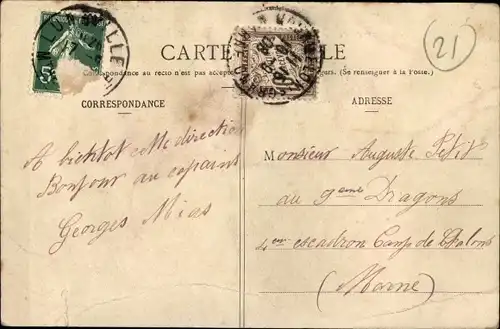 21
CARTE POSTALE
Correspondance au recto n'est pas acceptée (Se renseigner à la Poste.)
CORRESPONDANCE
ADRESSE
A bientot cette direction
Bonjour au copains
Georges Mias
Monsieur Auguste Petit
au 9eme Dragons
4em escadron Camp de Chalons
(Marne)